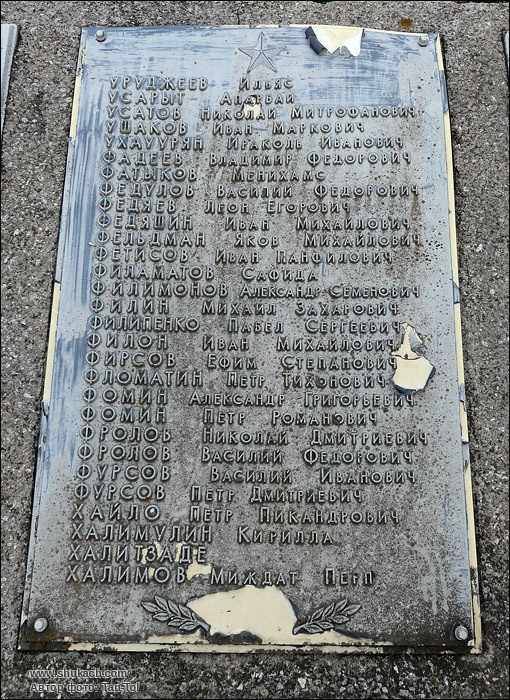 УРУДЖЕЕВ ИЛЬЯС
УСАРЫТ АПАТВАЙ
УСАТОВ НИКОЛАЙ МИТРОФАНОВИЧ
УШАКОВ ИВАН МАРКОВИЧ
УХАУУРЯН ИРАКОЛЬ ИВАНОВИЧ
ФАДЕЕВ ВЛАДИМИР ФЕДОРОВИЧ
ФАТЫКОВ МЕНИХАМС
ФЕДУЛОВ ВАСИЛИЙ ФЕДОРОВИЧ
ФЕДЯЕВ ЛЕОН ЕГОРОВИЧ
ФЕДЯШИН ИВАН МИХАЙЛОВИЧ
ФЕЛЬДМАН ЯКОВ МИХАЙЛОВИЧ
ФЕТИСОВ ИВАН ПАНФИЛОВИЧ
ФИЛАМАТОВ САФИДА
ФИЛИМОНОВ АЛЕКСАНДР СЕМЕНОВИЧ
ФИЛИН МИХАИЛ ЗАХАРОВИЧ
ФИЛИПЕНКО ПАВЕЛ СЕРГЕЕВИЧ
ФИЛОН ИВАН МИХАЙЛОВИЧ
ФИРСОВ ЕФИМ СТЕПАНОВИЧ
ФЛОМАТИН ПЕТР ТИХОНОВИЧ
ФОМИН АЛЕКСАНДР ГРИГОРЬЕВИЧ
ФОМИН ПЕТР РОМАНОВИЧ
ФРОЛОВ НИКОЛАЙ ДМИТРИЕВИЧ
ФРОЛОВ ВАСИЛИЙ ФЕДОРОВИЧ
ФУРСОВ ВАСИЛИЙ ИВАНОВИЧ
ФУРСОВ ПЕТР ДМИТРИЕВИЧ
ХАЙЛО ПЕТР ПИКАНДРОВИЧ
ХАЛИМУЛИН КИРИЛЛА
ХАЛИТЗАДЕ
ХАЛИМОВ МИЖДАТ ПЕТР
www.shukach.com
Автор фото: Tan-tol